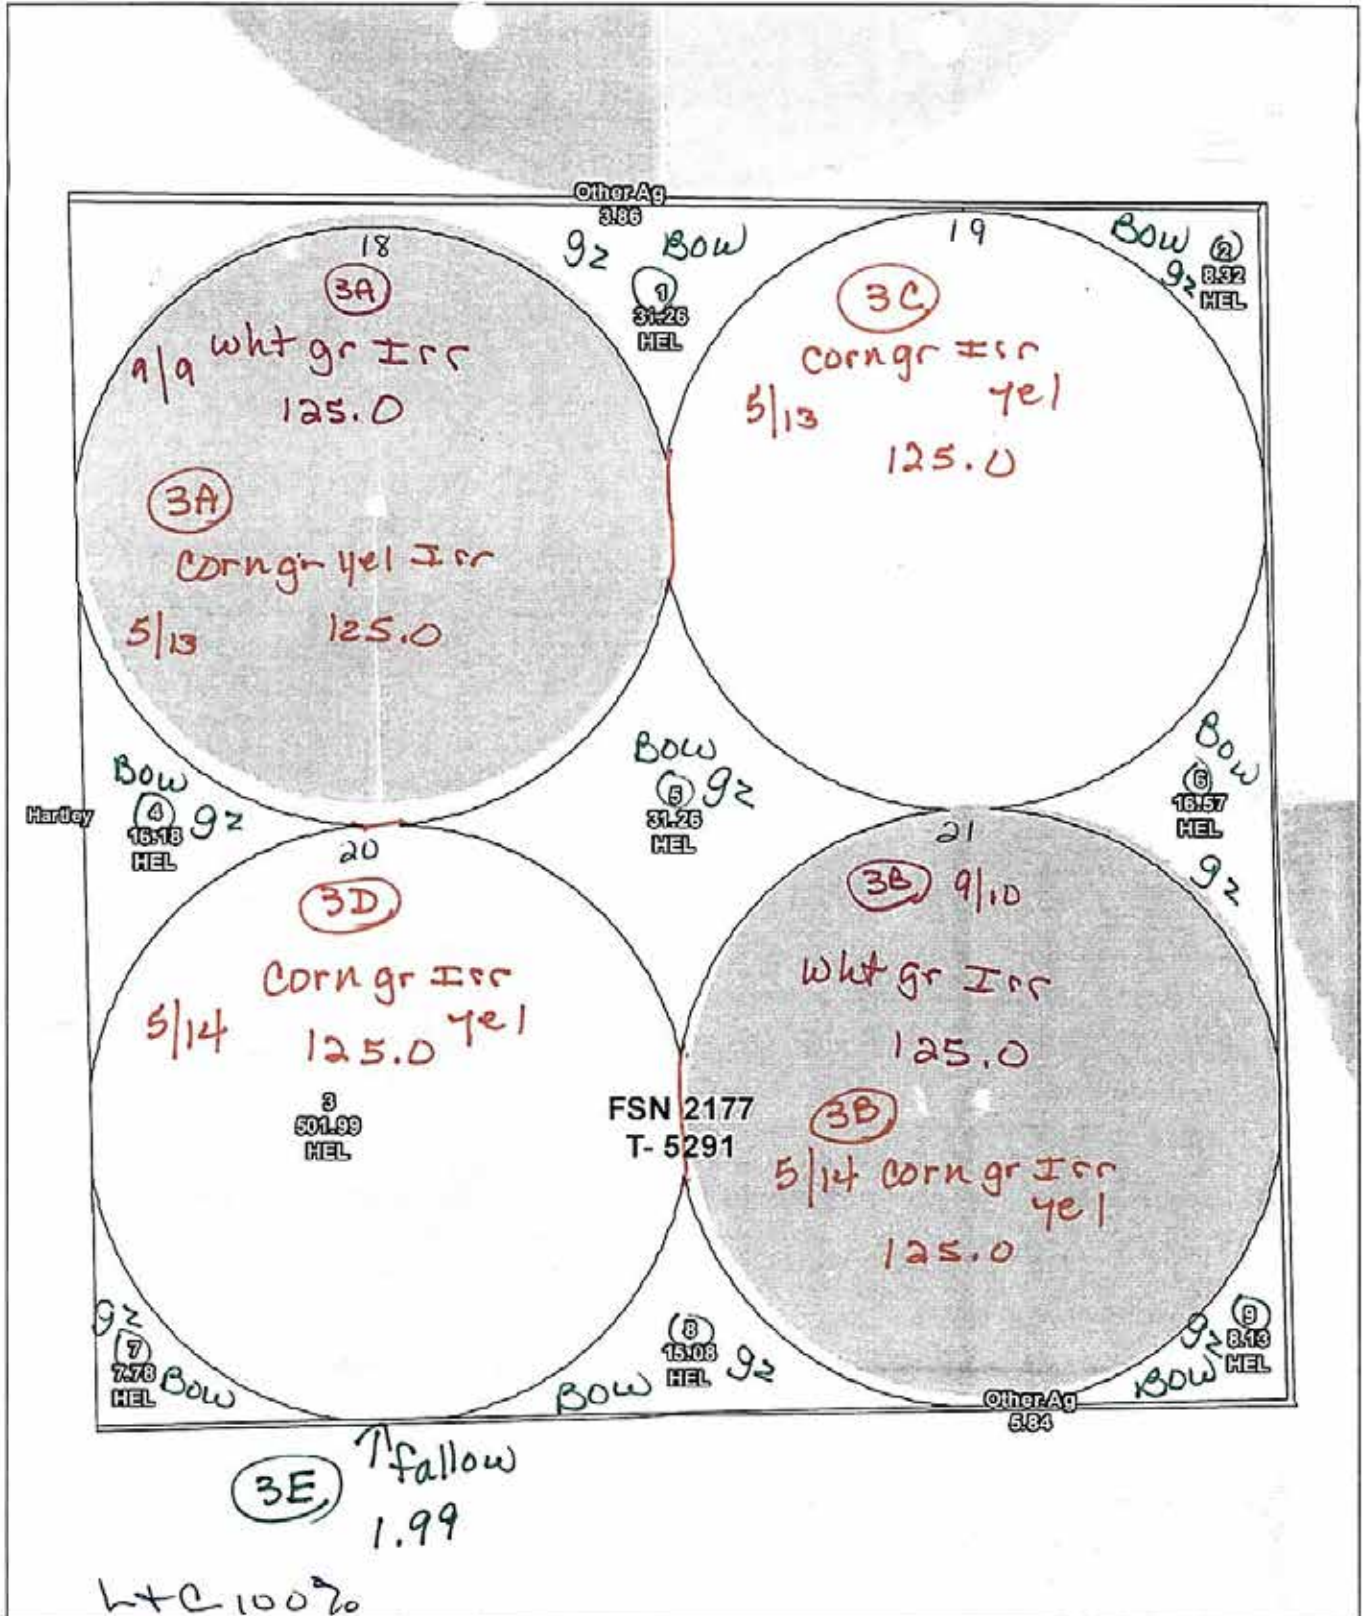 Other Ag
3.86
18
3A
9/9 wht gr Irr
125.0
3A
Corn gr yel Irr
5/13 125.0
gz Bow
1
31.26
HEL
19
3C
Corn gr Irr
yel
5/13
125.0
Bow 2
gz 8.32
HEL
Hartley
Bow
4 gz
16.18
HEL
Bow
5 gz
31.26
HEL
Bow
6
16.57
HEL
gz
20
3D
Corn gr Irr
yel
5/14 125.0
3
501.99
HEL
FSN 2177
T- 5291
21
3B 9/10
Wht gr Irr
125.0
3B
5/14 Corn gr Irr
yel
125.0
gz
7
7.78
HEL Bow
8
15.08
Bow HEL gz
9
gz 8.13
Bow HEL
Other Ag
5.84
3E ↑ fallow
1.99
L+C 100%